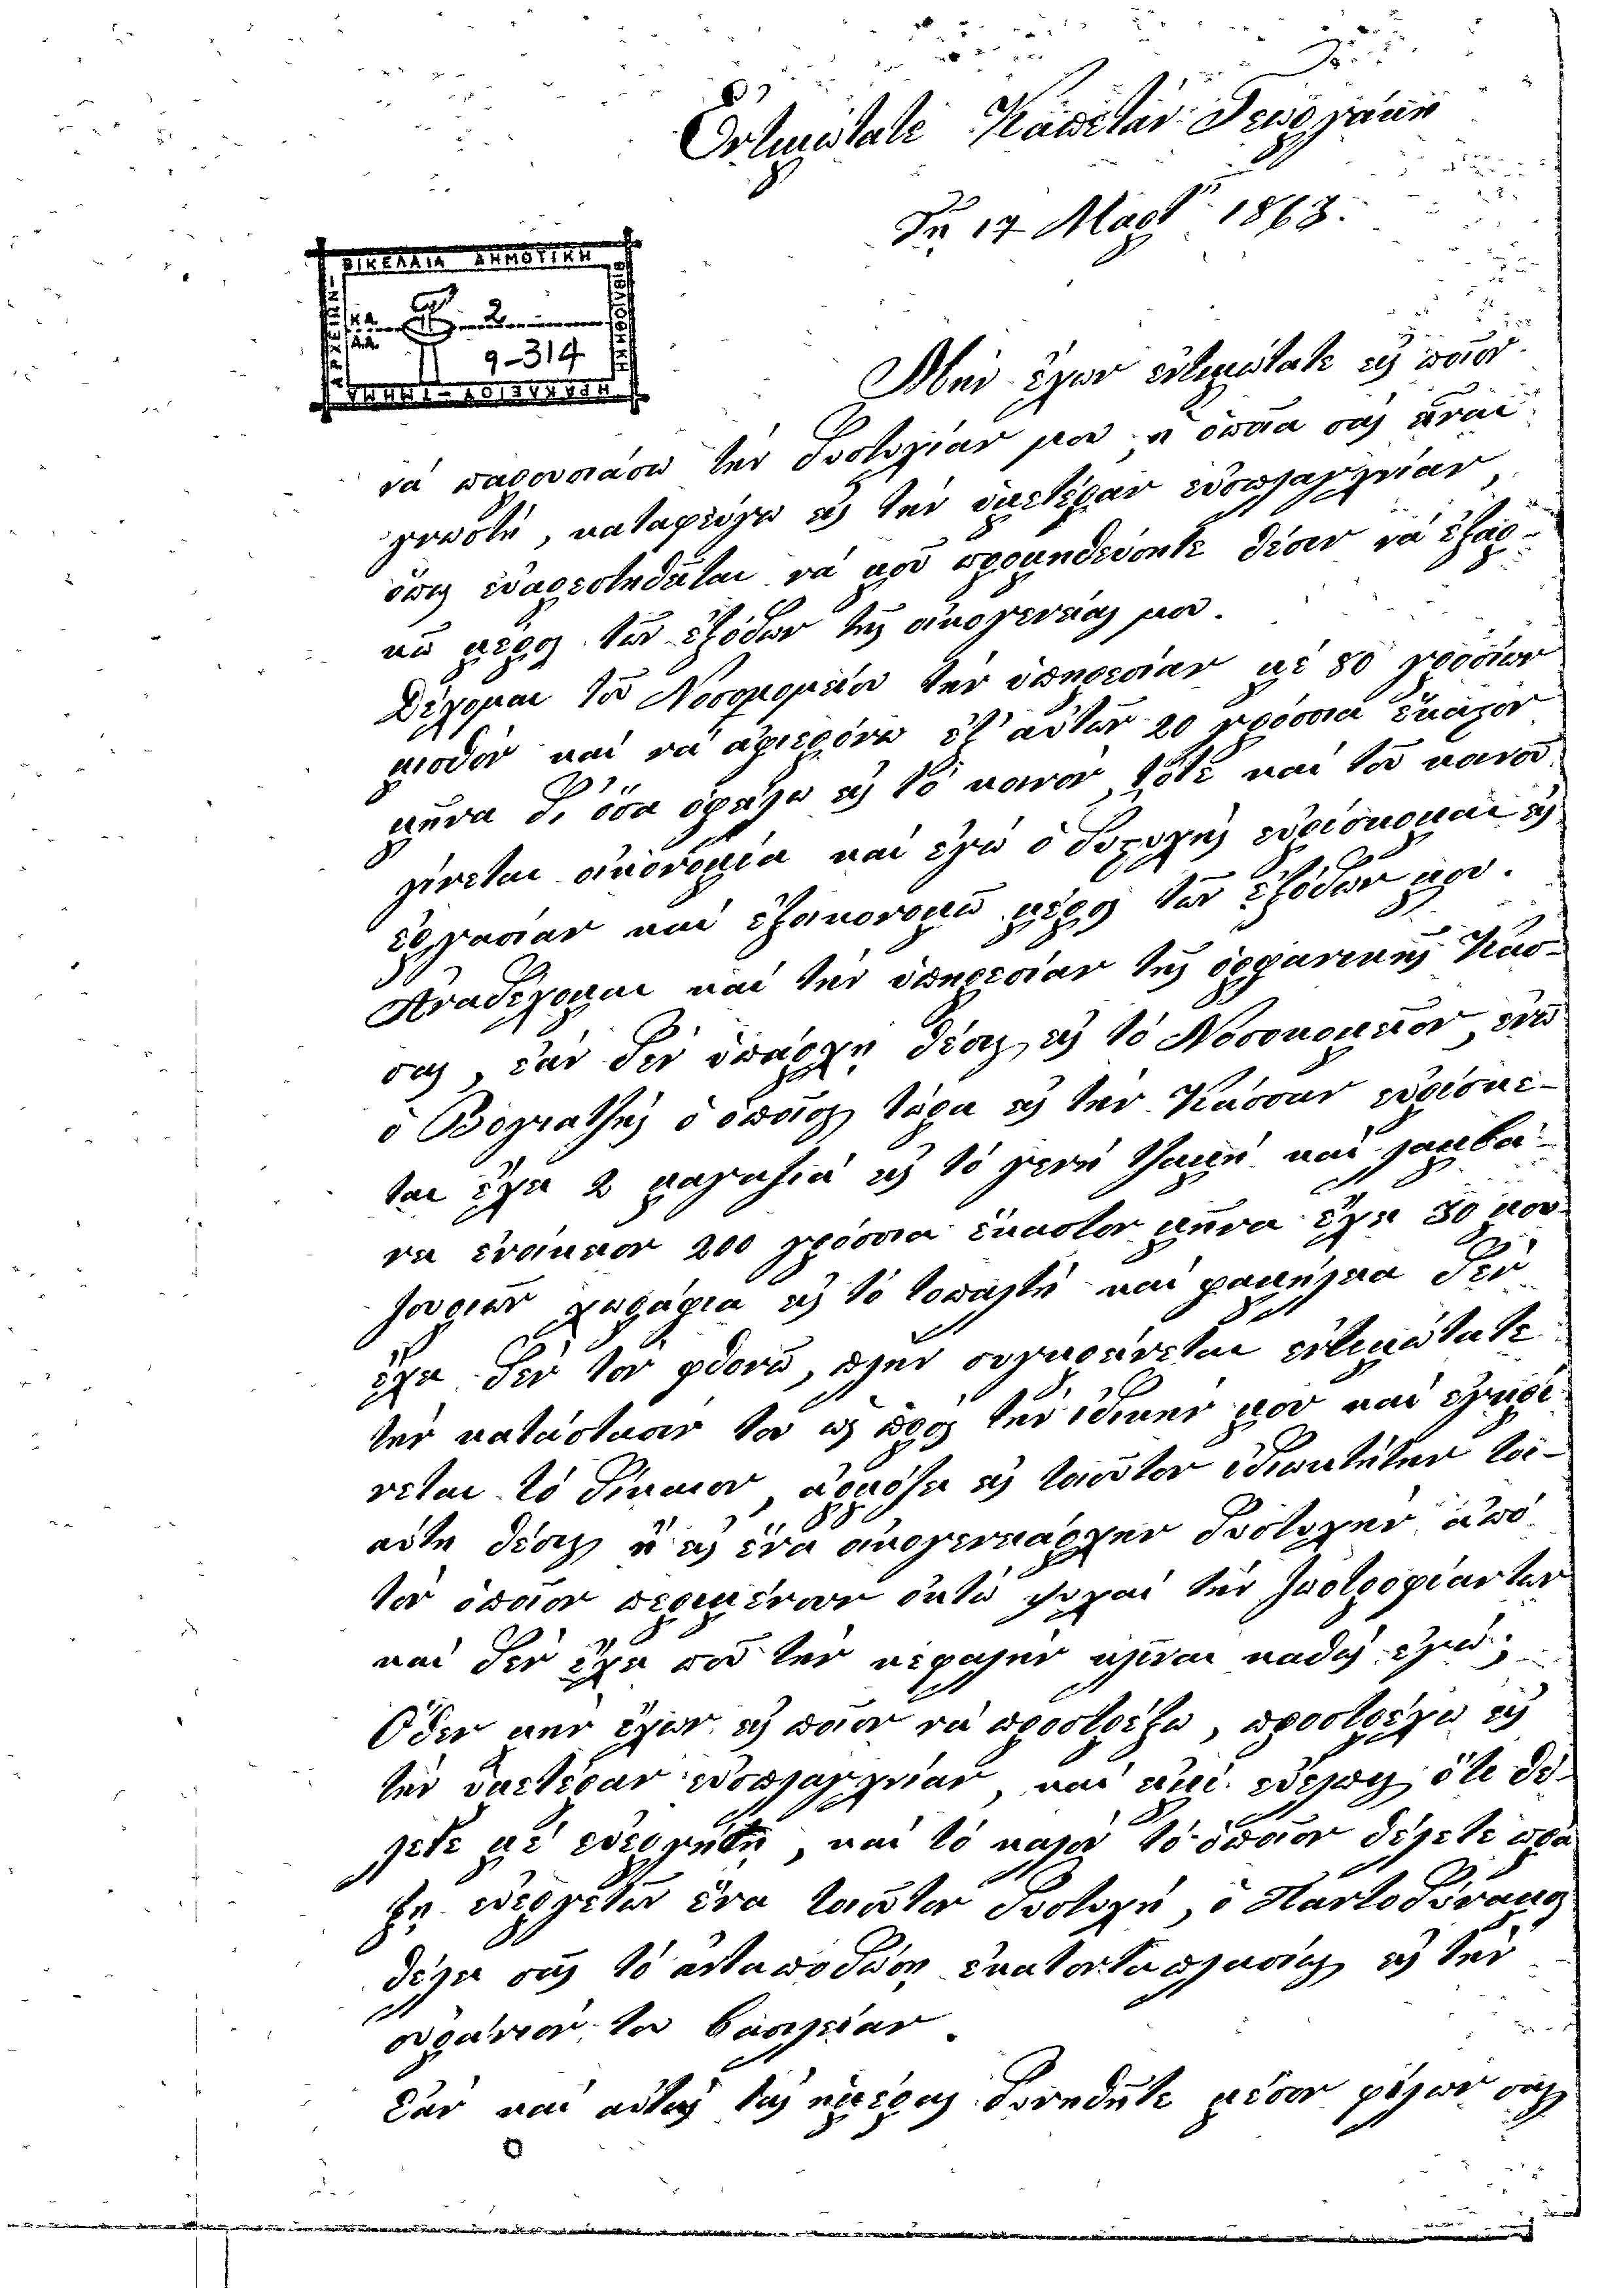 Ἐντιμώτατε Καπετὰν Γεωργάκη
Τῇ 17 Μαρτ. 1863.
ΒΙΚΕΛΑΙΑ ΔΗΜΟΤΙΚΗ
ΒΙΒΛΙΟΘΗΚΗ
ΗΡΑΚΛΕΙΟΥ - ΤΜΗΜΑ
ΑΡΧΕΙΩΝ
Κ.Δ. 2
Α.Α. 9-314
Μὴν ἔχων ἐντιμώτατε εἰς ποῖον
νὰ παρουσιάσω τὴν δυστυχίαν μου, ἡ ὁποία σᾶς εἶναι
γνωστή, καταφεύγω εἰς τὴν ὑμετέραν εὐσπλαγχνίαν,
ὅπως εὐαρεστηθῆται νὰ μοῦ προμηθεύσητε θέσιν νὰ ἐξαρ-
κῶ μέρος τῶν ἐξόδων τῆς οἰκογενείας μου.
Δέχομαι τοῦ Νοσοκομείου τὴν ὑπηρεσίαν μὲ 80 γροσίων
μισθὸν καὶ νὰ ἀφιερόνω ἐξ αὐτῶν 20 γρόσσια ἕκαστον
μῆνα δι' ὅσα ὀφείλω εἰς τὸ κοινόν, τότε καὶ τοῦ κοινοῦ
γίνεται οἰκονομία καὶ ἐγὼ ὁ δυστυχὴς εὑρίσκομαι εἰς
ἐργασίαν καὶ ἐξοικονομῶ μέρος τῶν ἐξόδων μου.
Ἀναδέχομαι καὶ τὴν ὑπηρεσίαν τῆς ὀρφανικῆς Κάσ-
σας, ἐὰν δὲν ὑπάρχῃ θέσις εἰς τὸ Νοσοκομεῖον, ἐνῶ
ὁ Βογιατζῆς ὁ ὁποῖος τώρα εἰς τὴν Κάσσαν εὑρίσκε-
ται ἔχει 2 μαγαζιὰ εἰς τὸ γενὴ τζαμὴ καὶ λαμβά-
νει ἐνοίκιον 200 γρόσσια ἕκαστον μῆνα ἔχει 30 μου-
ζουριῶν χωράφια εἰς τὸ τοπαλτὶ καὶ φαμήλια δὲν
ἔχει δὲν τὸν φθονῶ, πλὴν συγκρίνεται ἐντιμώτατε
τὴν κατάστασίν του ὡς πρὸς τὴν ἰδικήν μου καὶ ἐγκρί-
νεται τὸ δίκαιον, ἁρμόζει εἰς τοιοῦτον ἰδιοκτήτην τοι-
αύτη θέσις ἢ εἰς ἕνα οἰκογενειάρχην δυστυχῆν ἀπὸ
τὸν ὁποῖον περιμένουν ὀκτὼ ψυχαὶ τὴν ζωοτροφίαν των
καὶ δὲν ἔχει ποῦ τὴν κεφαλὴν κλῖναι καθὼς ἐγώ;
Ὅθεν μὴν ἔχων εἰς ποῖον νὰ προστρέξω, προστρέχω εἰς
τὴν ὑμετέραν εὐσπλαγχνίαν, καὶ εἶμαι εὔελπις ὅτι θέ-
λετε μὲ εὐεργέτῃ, καὶ τὸ καλὸν τὸ ὁποῖον θέλετε πρά-
ξῃ εὐεργετῶν ἕνα τοιοῦτον δυστυχῆ, ὁ Παντοδύναμος
θέλει σᾶς τὸ ἀνταποδώσῃ ἑκατονταπλασίως εἰς τὴν
οὐράνιόν του βασιλείαν.
Ἐὰν καὶ αὐτὰς τὰς ἡμέρας δυνηθῆτε μέσον φίλων σας